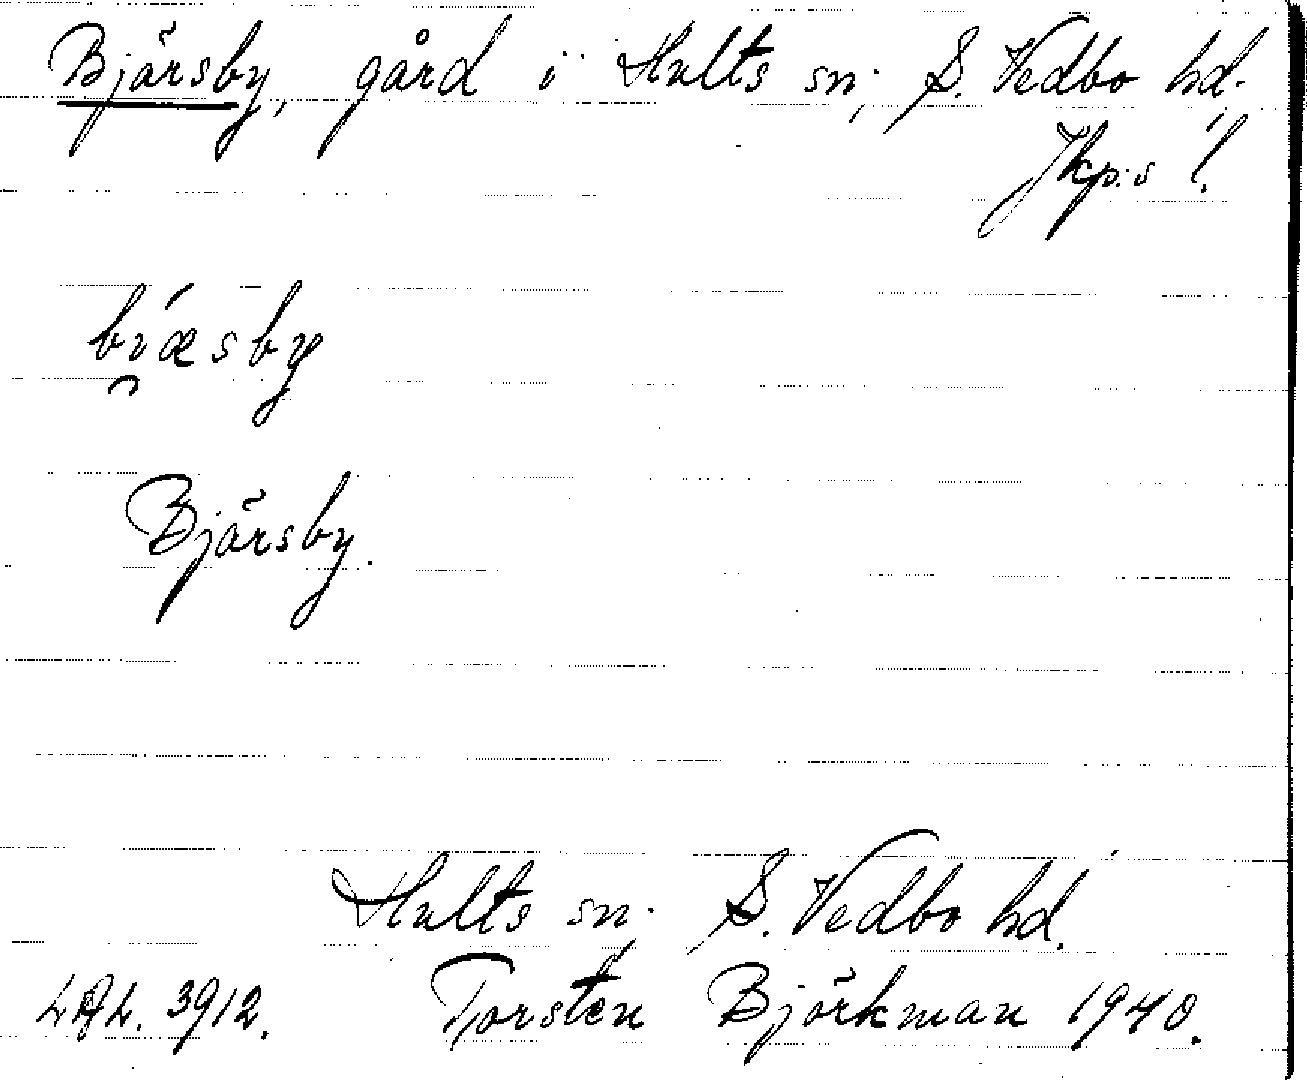 Bjärsby, gård i Hults sn, S. Vedbo hd.
Jkp:s l.
bi̯æ´sby
Bjärsby.
Hults sn. S. Vedbo hd.
LAL. 3912. Torsten Björkman 1940.